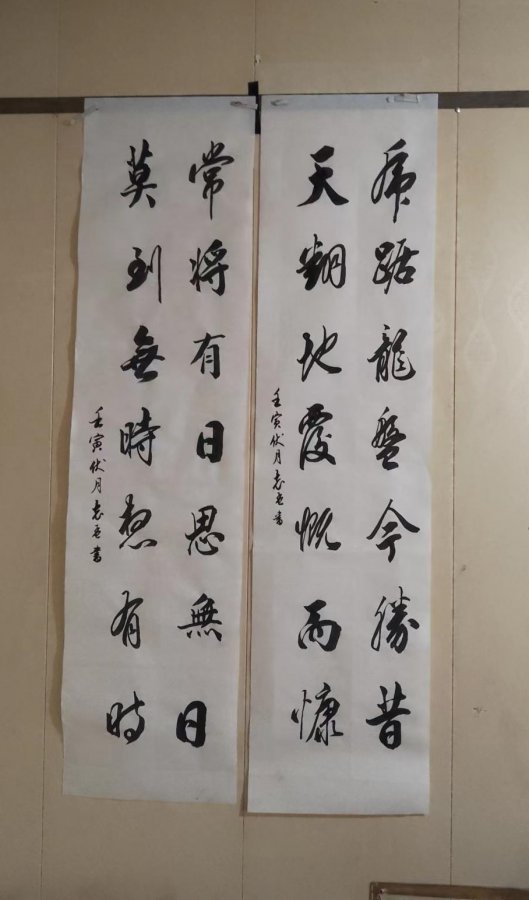 虎踞龍盤今勝昔
天翻地覆慨而慷
壬寅伏月志書
常將有日思無日
莫到無時想有時
壬寅伏月志書